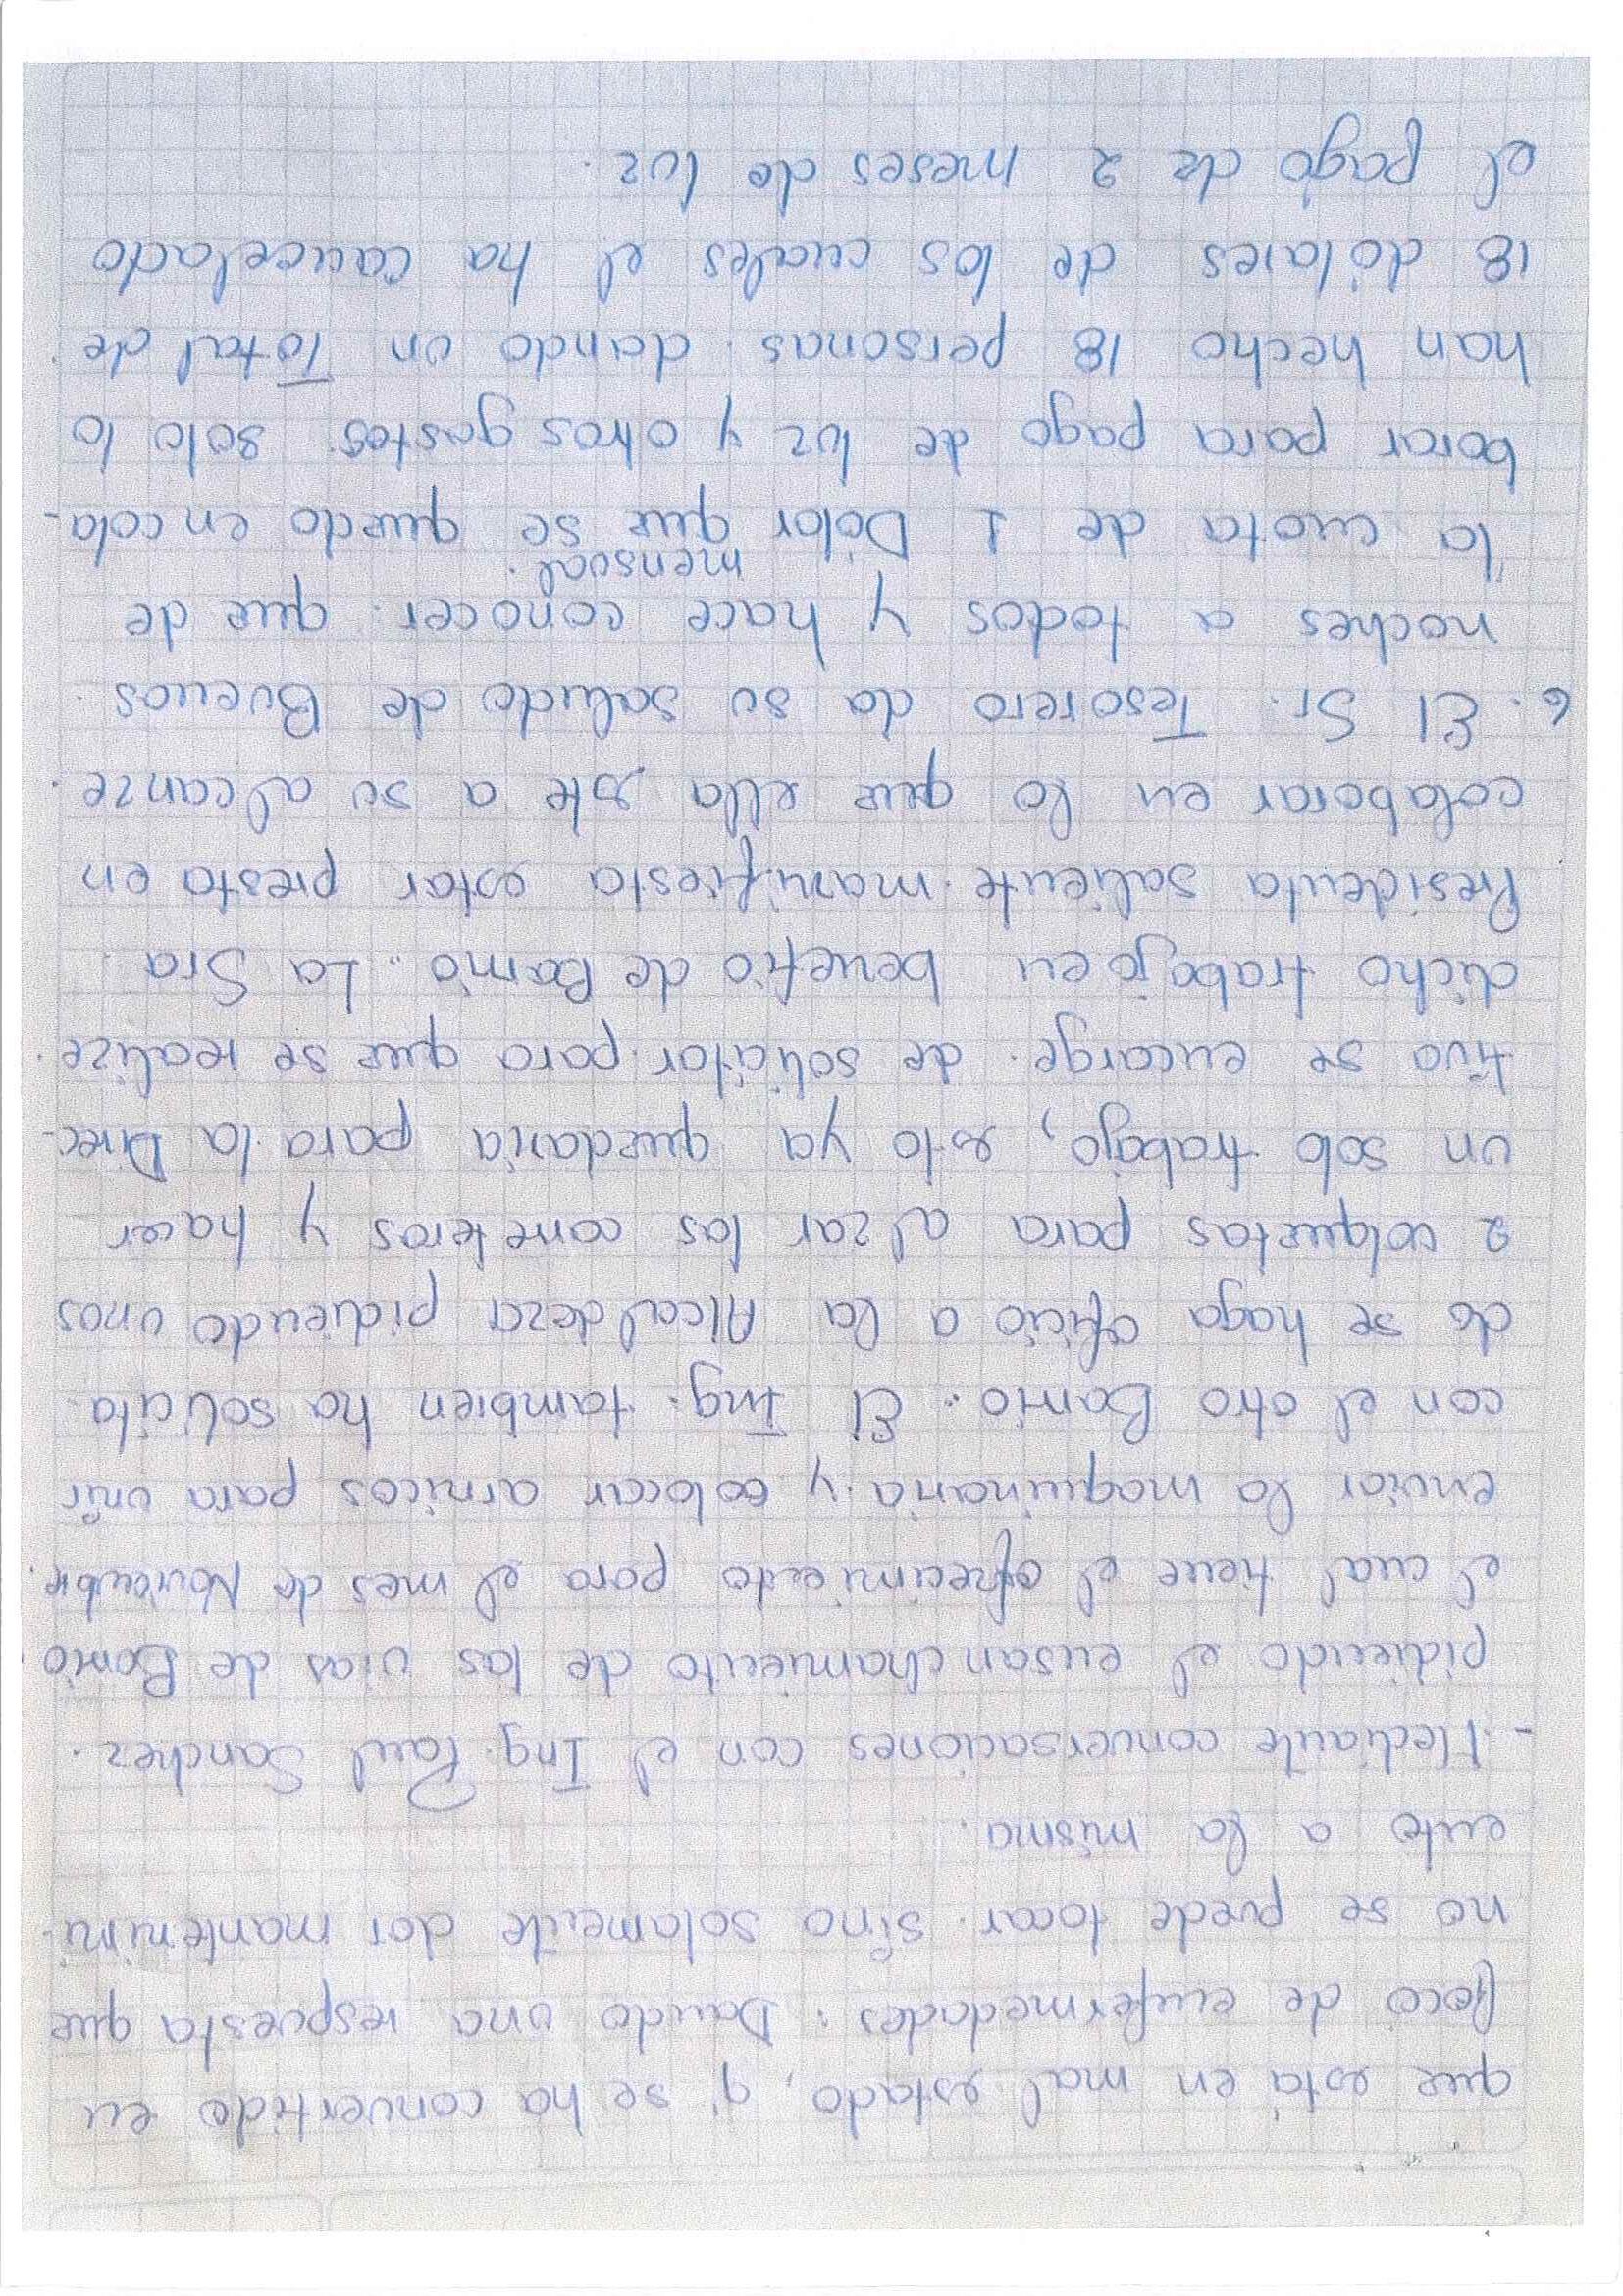 que está en mal estado, q' se ha convertido en
foco de enfermedades: Dando una respuesta que
no se puede tocar. sino solamente dar mantenimi-
ento a la misma.
- Mediante conversaciones con el Ing. Paul Sanchez.
pidiendo el ensanchamiento de las vias de Barrio.
el cual tiene el ofrecimiento para el mes de Noviembre.
enviar la maquinaria y colocar arnicos para unir
con el otro Barrio. El Ing. tambien ha solicita
do se haga oficio a la Alcaldeza pidiendo unos
2 volquetas para alzar las carreteros y hacer
un solo trabajo, esto ya quedaria para la Direc-
tiva se encarge. de solicitar. para que se realize.
dicho trabajo en benefio de Barrio. La Sra
Presidenta saliente. manifiesta estar presta en
colaborar en lo que ella este a su alcanze.
6. El Sr. Tesorero da su saludo de Buenas.
noches a todos y hace conocer. que de
mensual.
la cuota de 1 Dólar que se quedo en cola-
borar para pago de luz y otros gastos. solo lo
han hecho 18 personas. dando un Total de.
18 dólares de los cuales el ha cancelado
el pago de 2 meses de luz.